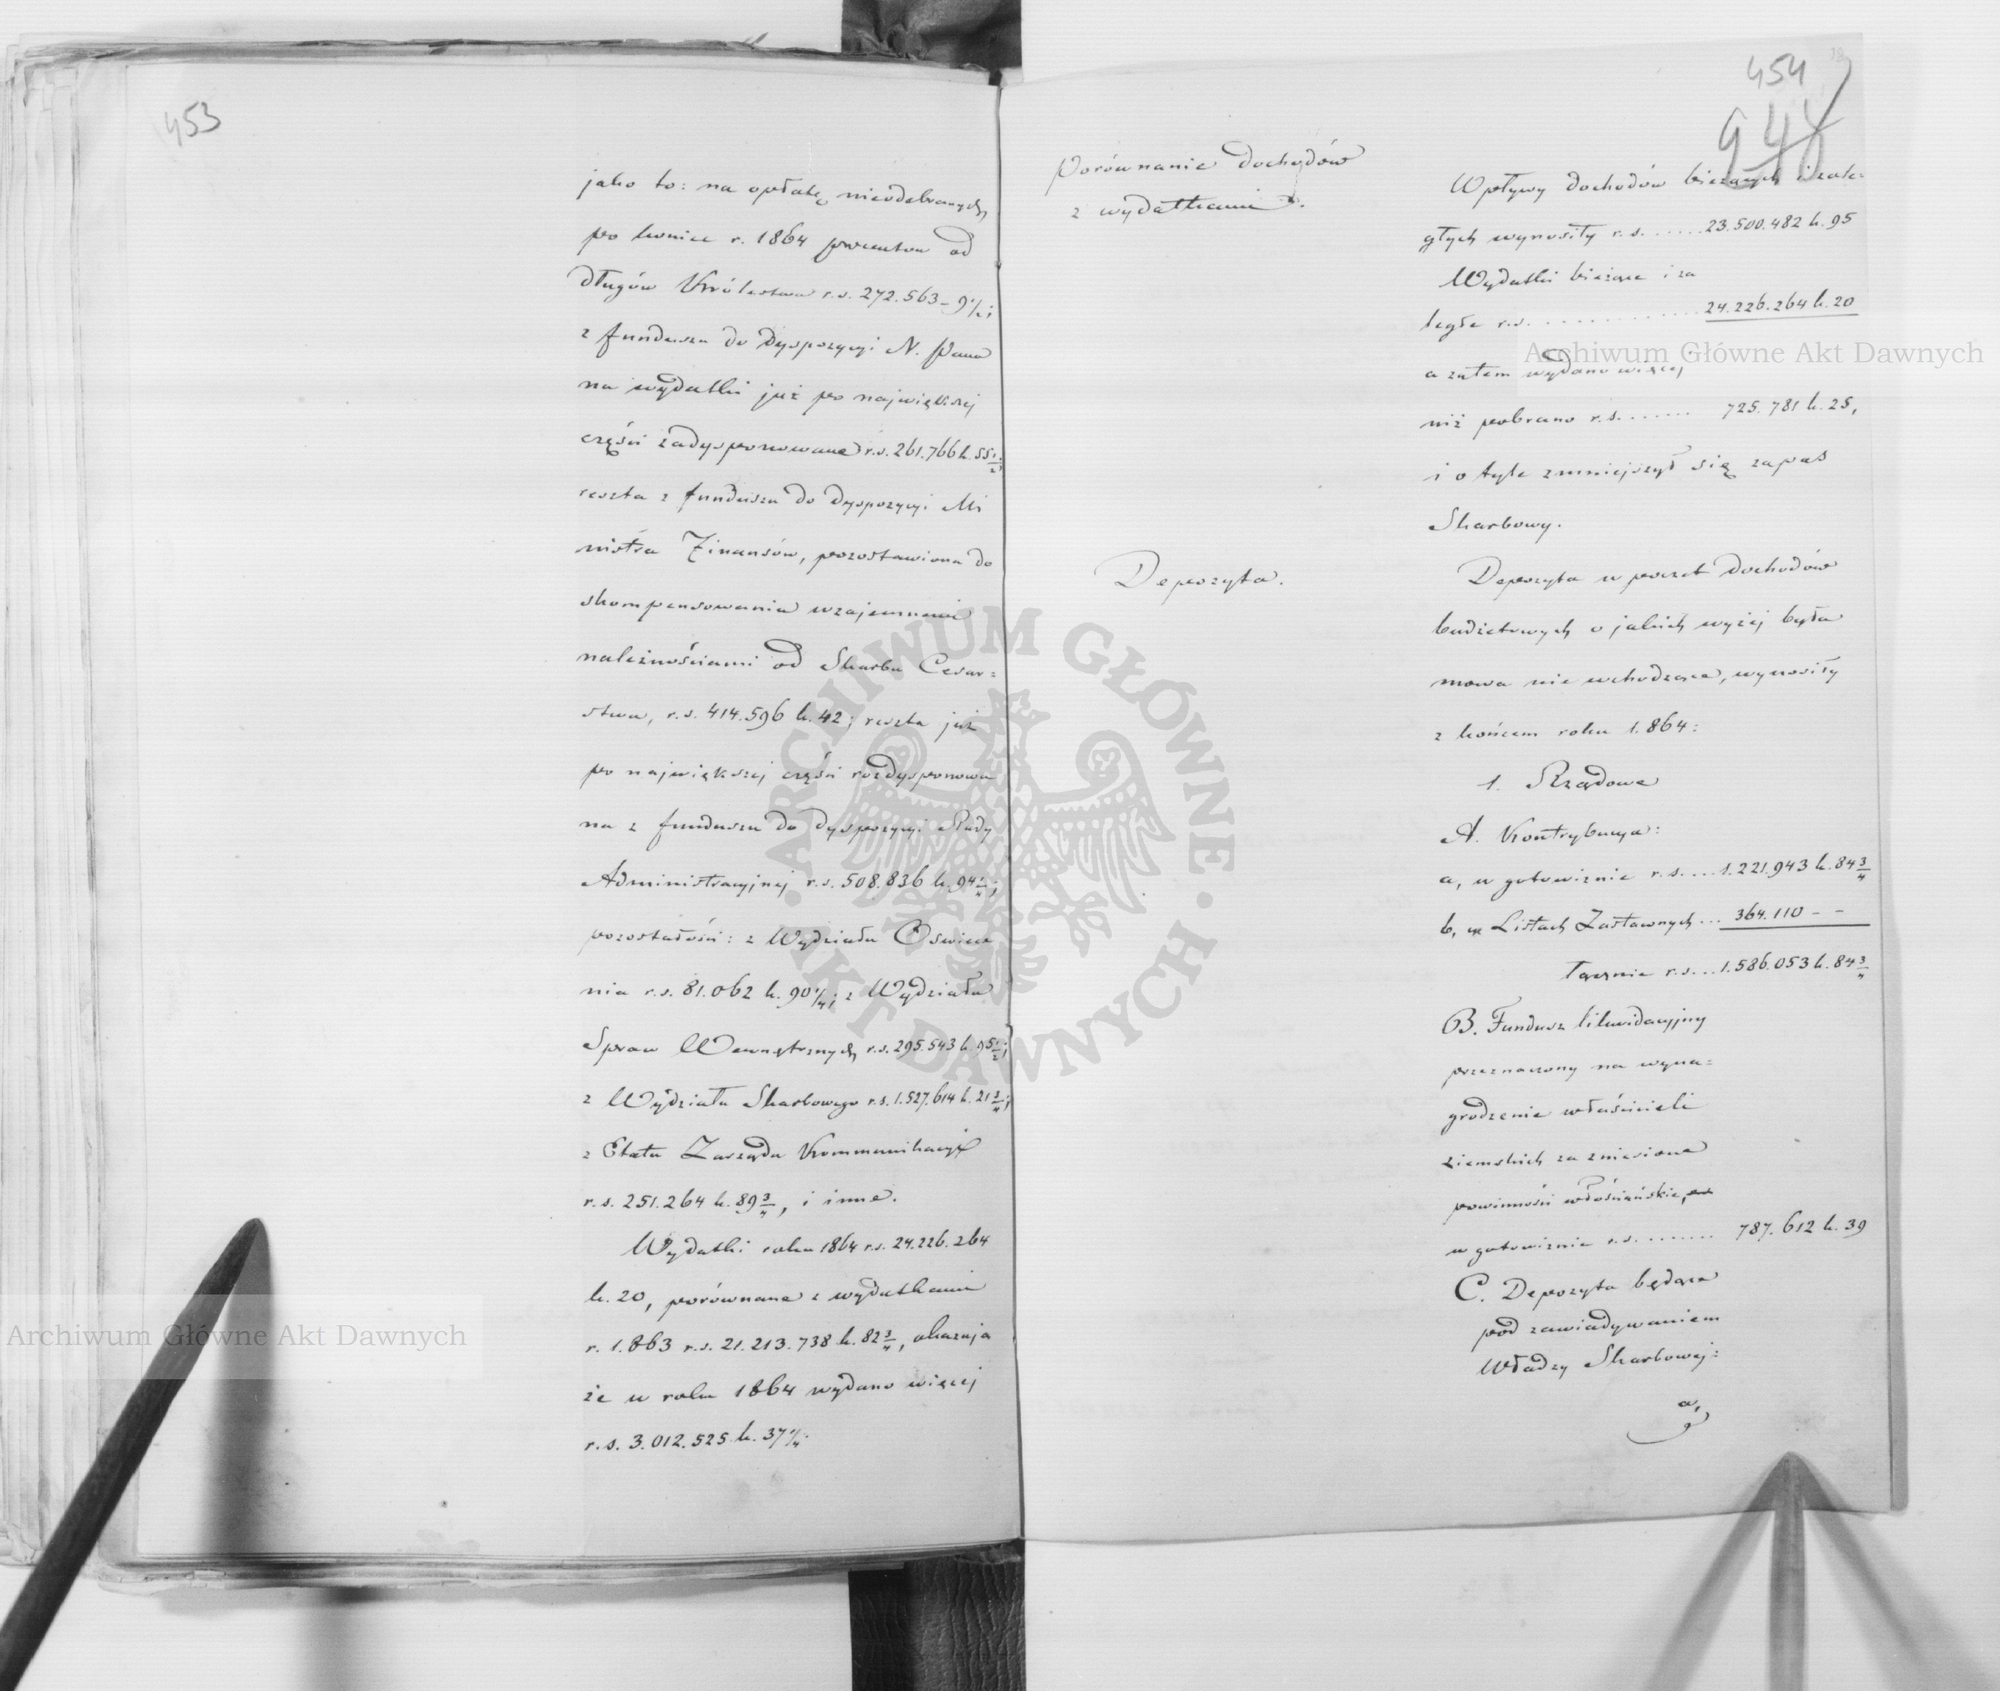 453
jako to: na opłatę nieodebranych,
po koniec r. 1864 procentów od
długów Królestwa r.s. 272.563 - 9 1/2;
z funduszu do Dyspozycyi N. Pana
na wydatki już po największej
części zadysponowane r.s. 261.766 k. 55 1/2;
reszta z funduszu do Dyspozycyi Mi
nistra Finansów, pozostawiona do
skompensowania wzajemnemi
należnościami od Skarbu Cesar=
stwa, r.s. 414.596 k. 42; reszta już
po największej części rozdysponowa
na z funduszu do Dyspozycyi Rady
Administracyjnej r.s. 508.836 k. 94 1/4;
pozostałości: z Wydziału Oświece
nia r.s. 81.062 k. 90 1/4; z Wydziału
Spraw Wewnętrznych r.s. 295.543 k. 95 1/2;
z Wydziału Skarbowego r.s. 1.527.614 k. 21 3/4;
z Etatu Zarządu Kommunikacyi
r.s. 251.264 k. 89 3/4, i inne.
Wydatki roku 1864 r.s. 24.226.264
k. 20, porównane z wydatkami
r. 1.863 r.s. 21.213.738 k. 82 3/4, okazują
że w roku 1864 wydano więcej
r.s. 3.012.525 k. 37 1/4.
454
944
Porównanie dochodów
z wydatkami.
Wpływy dochodów bieżących i zale=
głych wynosiły r.s. ...... 23.500.482 k. 95
Wydatki bieżące i za
ległe r.s. .............. 24.226.264 k. 20
a zatem wydano więcej
niż pobrano r.s. ....... 725.781 k. 25,
i o tyle zmniejszył się zapas
Skarbowy.
Depozyta.
Depozyta w poczet dochodów
budżetowych o jakich wyżej była
mowa nie wchodzące, wynosiły
z końcem roku 1.864:
1. Rządowe
A. Kontrybucya:
a, w gotowiznie r.s. .... 1.221.943 k. 84 3/4
b, w Listach Zastawnych ... 364.110 - -
łącznie r.s. ... 1.586.053 k. 84 3/4
B. Fundusz likwidacyjny
przeznaczony na wyna=
grodzenie właścicieli
ziemskich za zniesione
powinności włościańskie,
w gotowiznie r.s. ........ 787.612 k. 39
C. Depozyta będące
pod zawiadywaniem
Władzy Skarbowej:
a,
Archiwum Główne Akt Dawnych
Archiwum Główne Akt Dawnych
· ARCHIWUM GŁÓWNE · AKT DAWNYCH